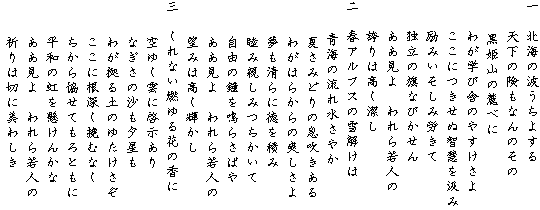 一 北海の波うちよする
天下の険もなんのその
黒姫山の麓べに
わが学び舎のやすけさよ
ここにつきせぬ智慧を汲み
励みいそしみ労きて
独立の旗なびかせん
ああ見よ われら若人の
誇りは高く潔し
二 春アルプスの雪解けは
青海の流れ水さやか
夏さみどりの息吹きある
わがはらからの爽しさよ
夢も清らに徳を積み
睦み親しみつちかいて
自由の鐘を鳴らさばや
ああ見よ われら若人の
望みは高く輝かし
三 くれない燃ゆる花の香に
空ゆく雲に啓示あり
なぎさの沙も夕星も
わが拠る土のゆたけさぞ
ここに根深く撓むなく
ちから協せてもろともに
平和の虹を懸けんかな
ああ見よ われら若人の
祈りは切に美わしき